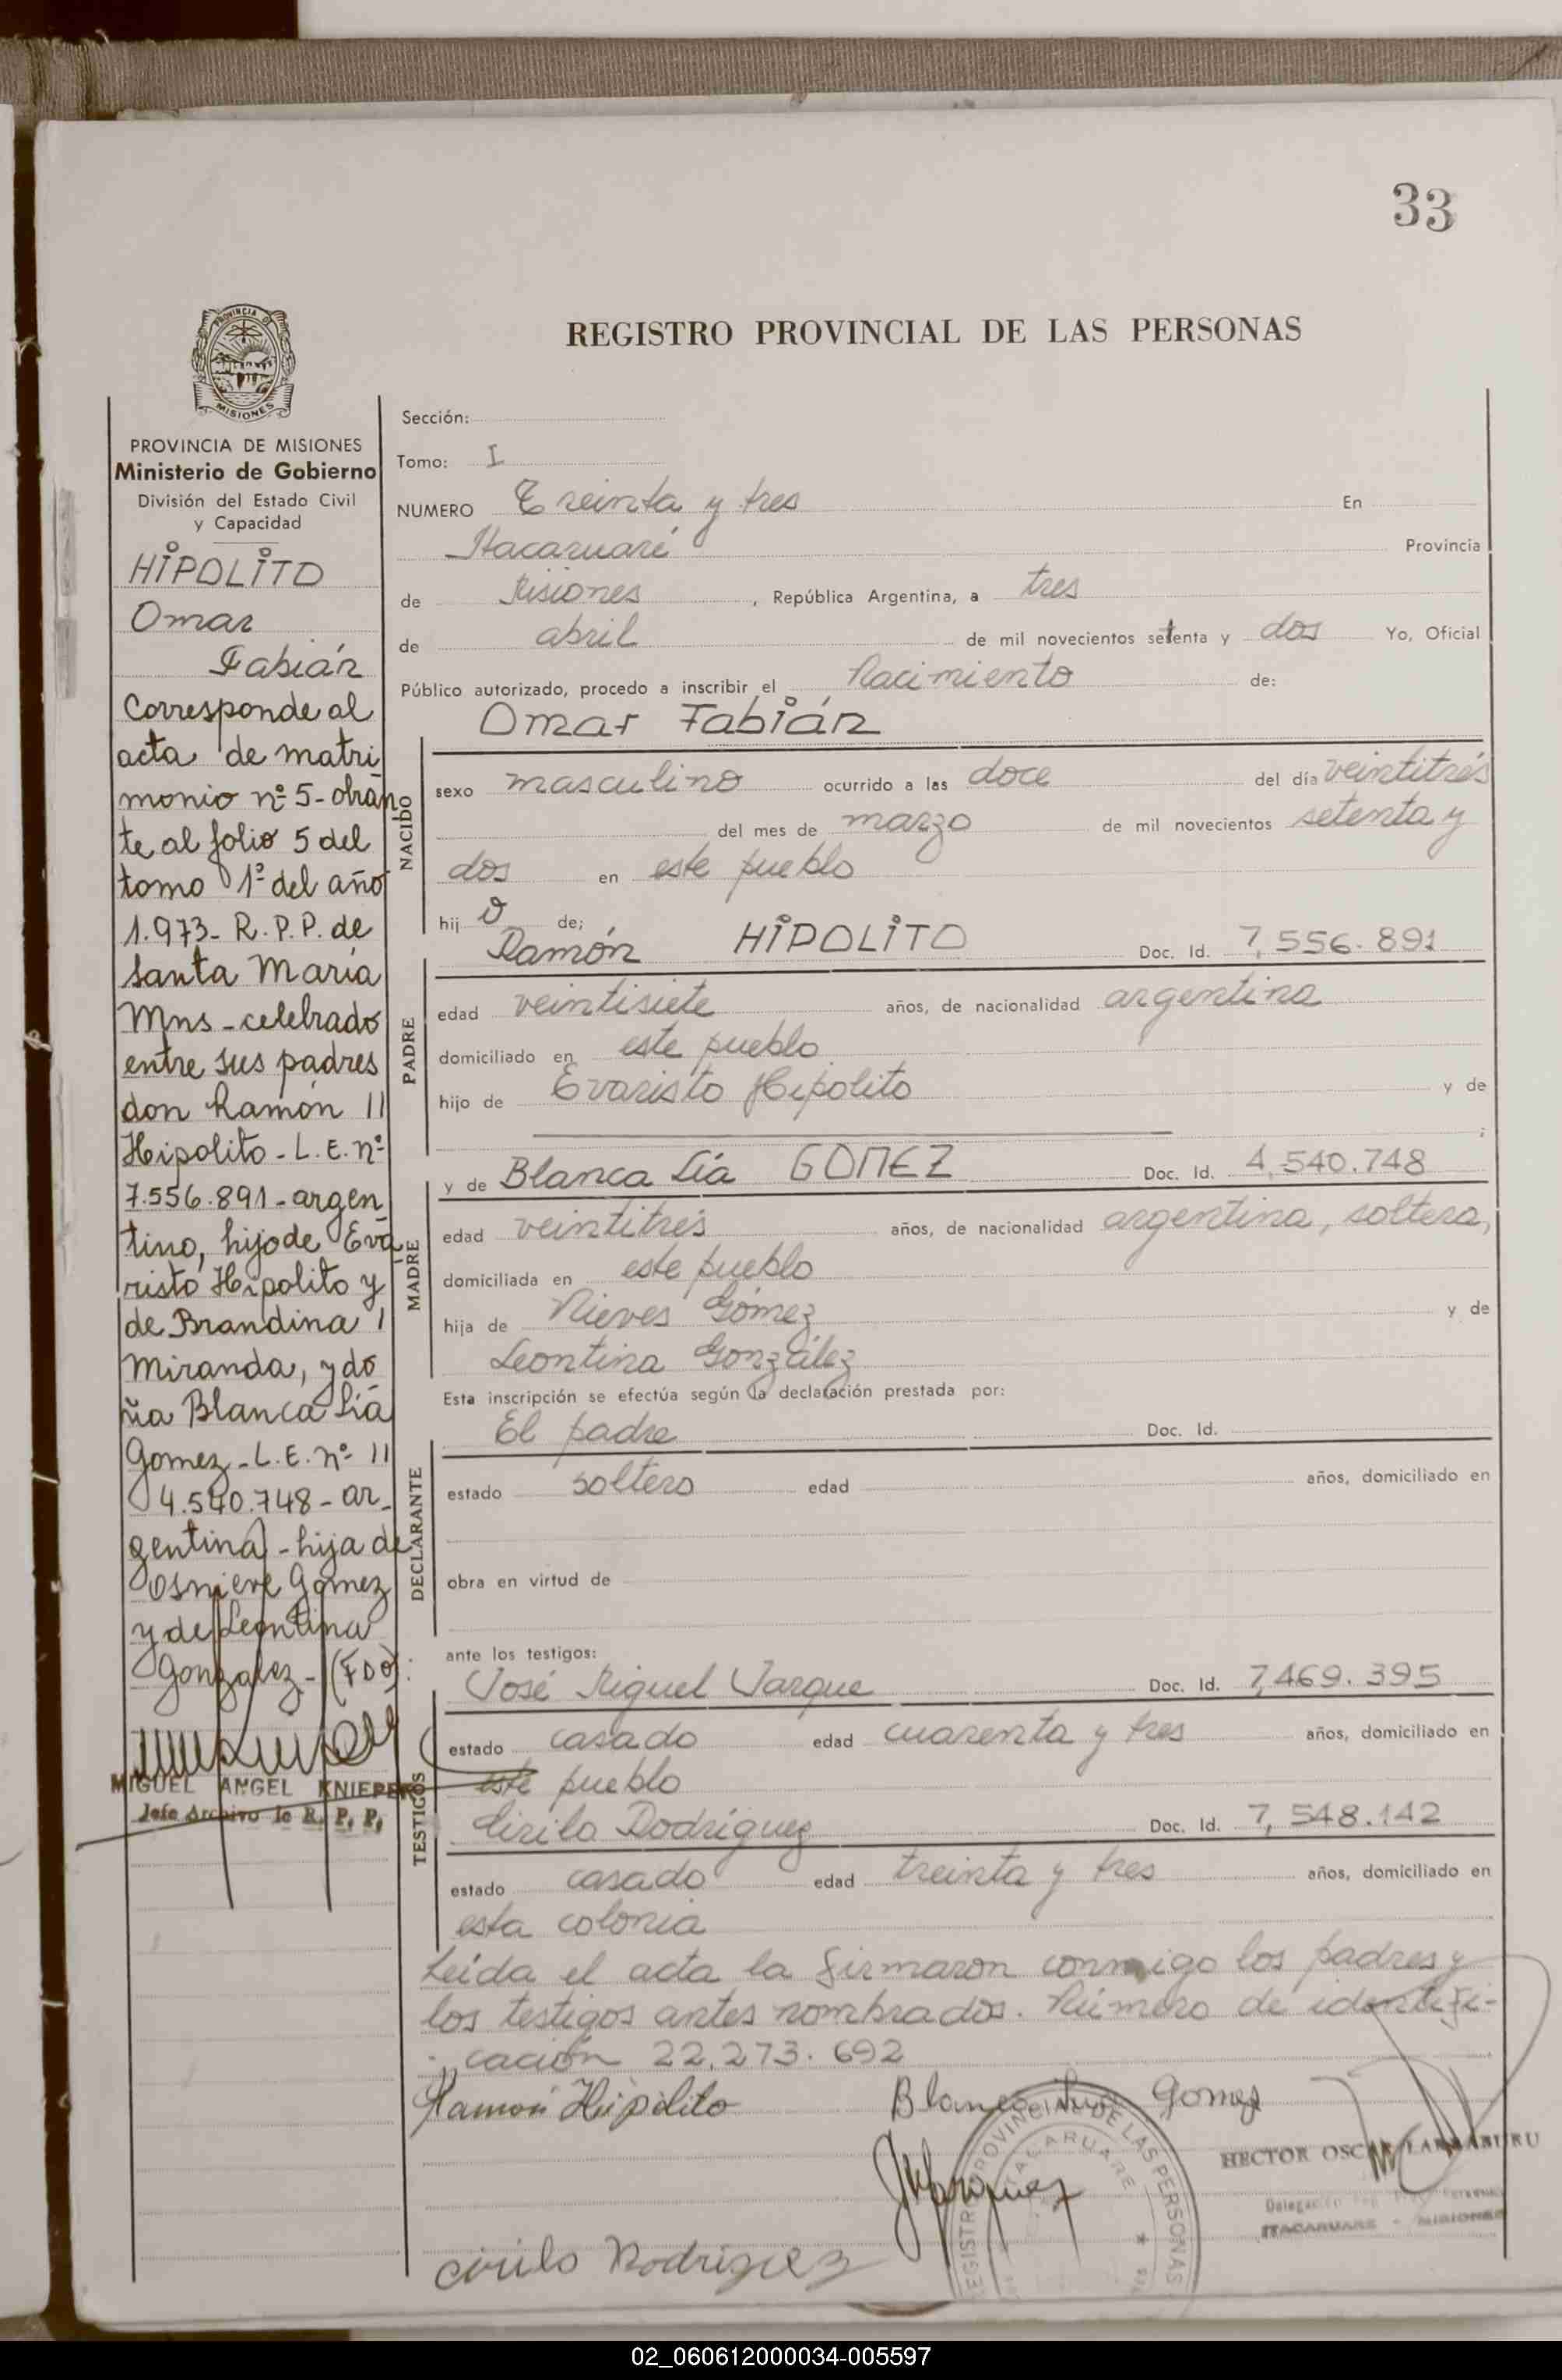 33
PROVINCIA DE
MISIONES
REGISTRO PROVINCIAL DE LAS PERSONAS
PROVINCIA DE MISIONES
Ministerio de Gobierno
División del Estado Civil
y Capacidad
HIPOLITO
Omar
Fabián
Corresponde al
acta de matri
monio nº 5 - obran
te al folio 5 del
tomo 1º del año
1.973 - R. P. P. de
Santa María
Mns - celebrado
entre sus padres
don Ramón
Hipolito - L. E. nº
7.556.891 - argen
tino, hijo de Eva
risto Hipolito y
de Brandina
Miranda, y do
ña Blanca Lía
Gomez - L. E. nº
4.540.748 - ar_
gentina - hija de
Osnieve Gomez
y de Leontina
Gonzalez - (FDO):
MIGUEL ANGEL KNIEPER
Jefe Archivo R. P. P.
Sección:
Tomo: I
NUMERO Treinta y tres En
Itacaruaré Provincia
de Misiones , República Argentina, a tres
de abril de mil novecientos setenta y dos Yo, Oficial
Público autorizado, procedo a inscribir el Nacimiento de:
Omar Fabián
NACIDO
sexo masculino ocurrido a las doce del día veintitrés
del mes de marzo de mil novecientos setenta y
dos en este pueblo
hij o de;
Ramón HIPOLITO Doc. Id. 7,556.891
PADRE
edad veintisiete años, de nacionalidad argentina
domiciliado en este pueblo
hijo de Evaristo Hipólito y de
;
y de Blanca Lía GOMEZ Doc. Id. 4,540.748
MADRE
edad veintitrés años, de nacionalidad argentina, soltera,
domiciliada en este pueblo
hija de Nieves Gómez y de
Leontina González
Esta inscripción se efectúa según la declaración prestada por:
El padre Doc. Id.
DECLARANTE
estado soltero edad años, domiciliado en
obra en virtud de
ante los testigos:
José Miguel Varque Doc. Id. 7,469.395
TESTIGOS
estado casado edad cuarenta y tres años, domiciliado en
este pueblo
Cirilo Rodríguez Doc. Id. 7,548.142
estado casado edad treinta y tres años, domiciliado en
esta colonia
Leída el acta la firmaron conmigo los padres y
los testigos antes nombrados. Número de identifi-
cación 22.273.692
Ramón Hipólito
Blanca Gomez
REGISTRO PROVINCIAL DE LAS PERSONAS
ITACARUARE
HECTOR OSCAR LARRABURU
ITACARUARE - MISIONES
Cirilo Rodriguez
02_060612000034-005597